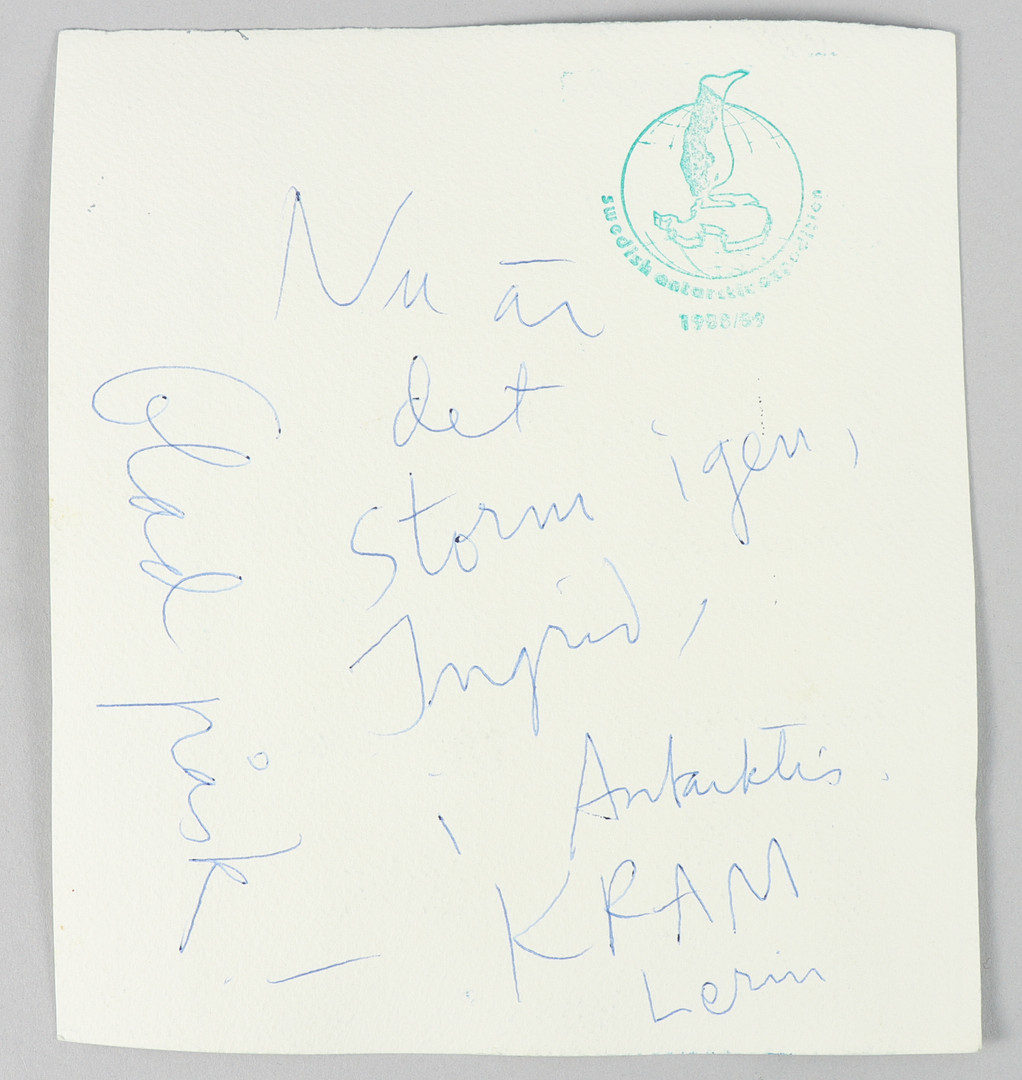 swedish antarktic expedition
1988/89
Nu är
det
storm igen,
Ingrid,
i Antarktis.
KRAM
Lerin
Glad påsk!